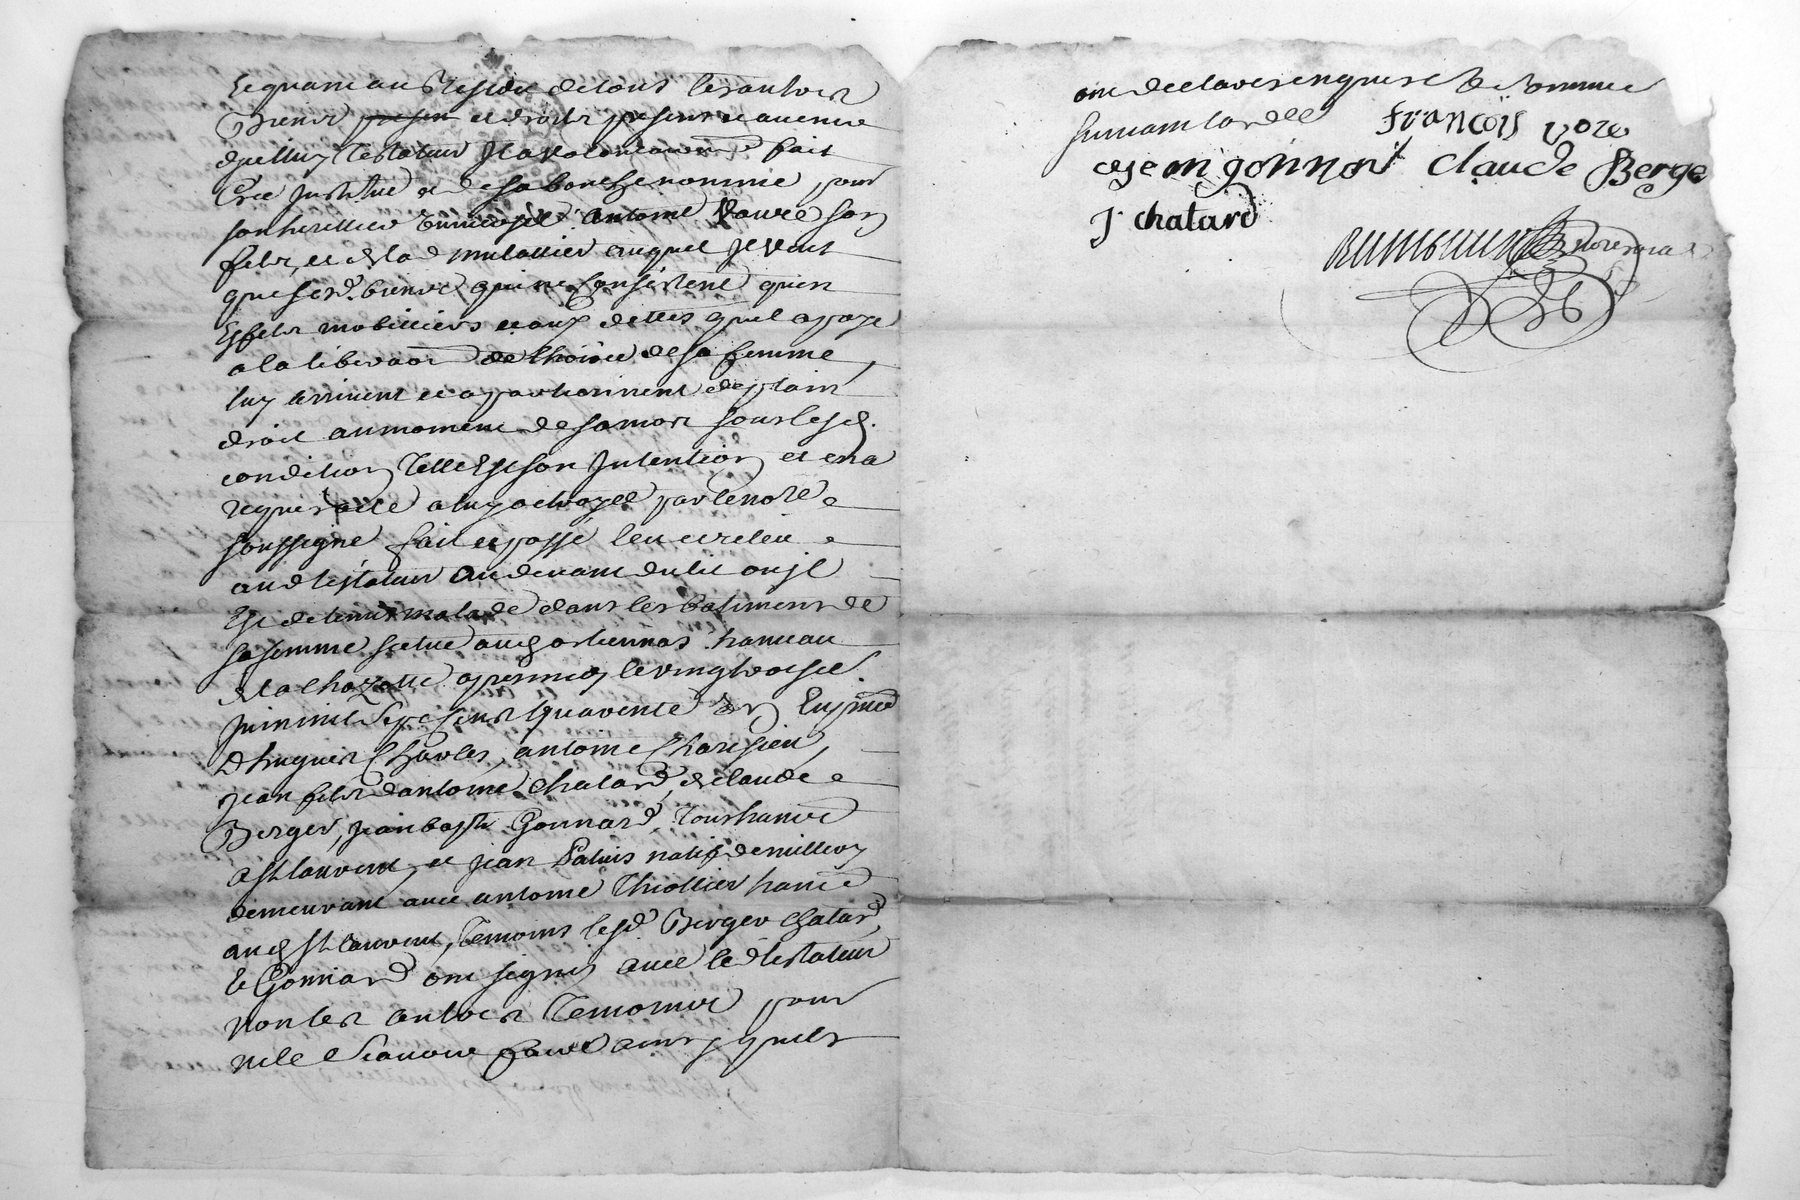 Et quant au Residu de tous les autres
Biens presen et droits presens et avenir
duelluy testateur Il a volontairemt fait
Cree Institué et de sa bouche nommé pour
son heritier universel antoine son
fils, et de la d mulattier auquel Il veut
que sesd. biens qui ne consistent quen
Effets mobilliers et aux dettes quil a paye
a la liberaon de lhoirie de sa femme,
luy arrivent et appartiennent de plain
droit au moment de sa mort sous lesd.
condition telle Est son Intention et en a
requis acte a luy octroyee par le nore
soussigné fait et passé leu et releu
aud testateur au devant du lit ou jl
Est detenu malade dans les batiments de
sa femme scitue aud hameau
de la chazotte apresmidy le vingt trois
Juin mil Sept Cent quarente En pnce
D hugues Charles, antoine
jean fils dantoine Chatard, et claude
Berger, Jean bapte Gonnard, tous hants
a st laurent, et jean natif de millery
demeurant avec antoine Thiollier hant
aud st laurent, temoins lesd Berger Chatard,
Et Gonnard ont signé avec led testateur
non les autres temoins pour
ne le scavoir faire ainsy quils
ont declarés enquis et sommés
suivant lord
François vore
Jean gonnart Claude Berge
J chatard